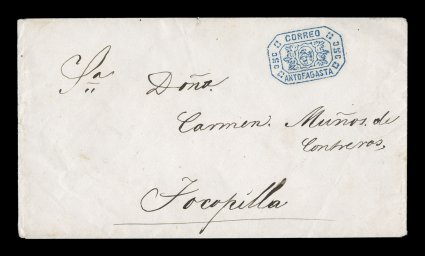 CORREO
C5C C5C
ANTOFAGASTA
Sa
Doña.
Carmen. Muños. de
Contreras,
Tocopilla